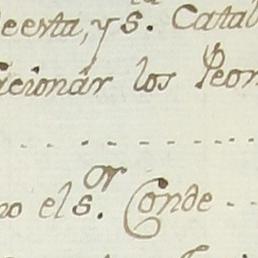 y S. Catal
cionár los Peon
el S.or Conde